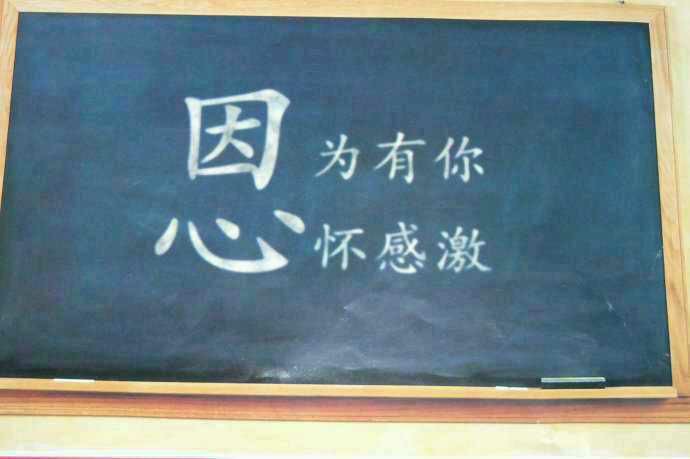 因为有你
心怀感激